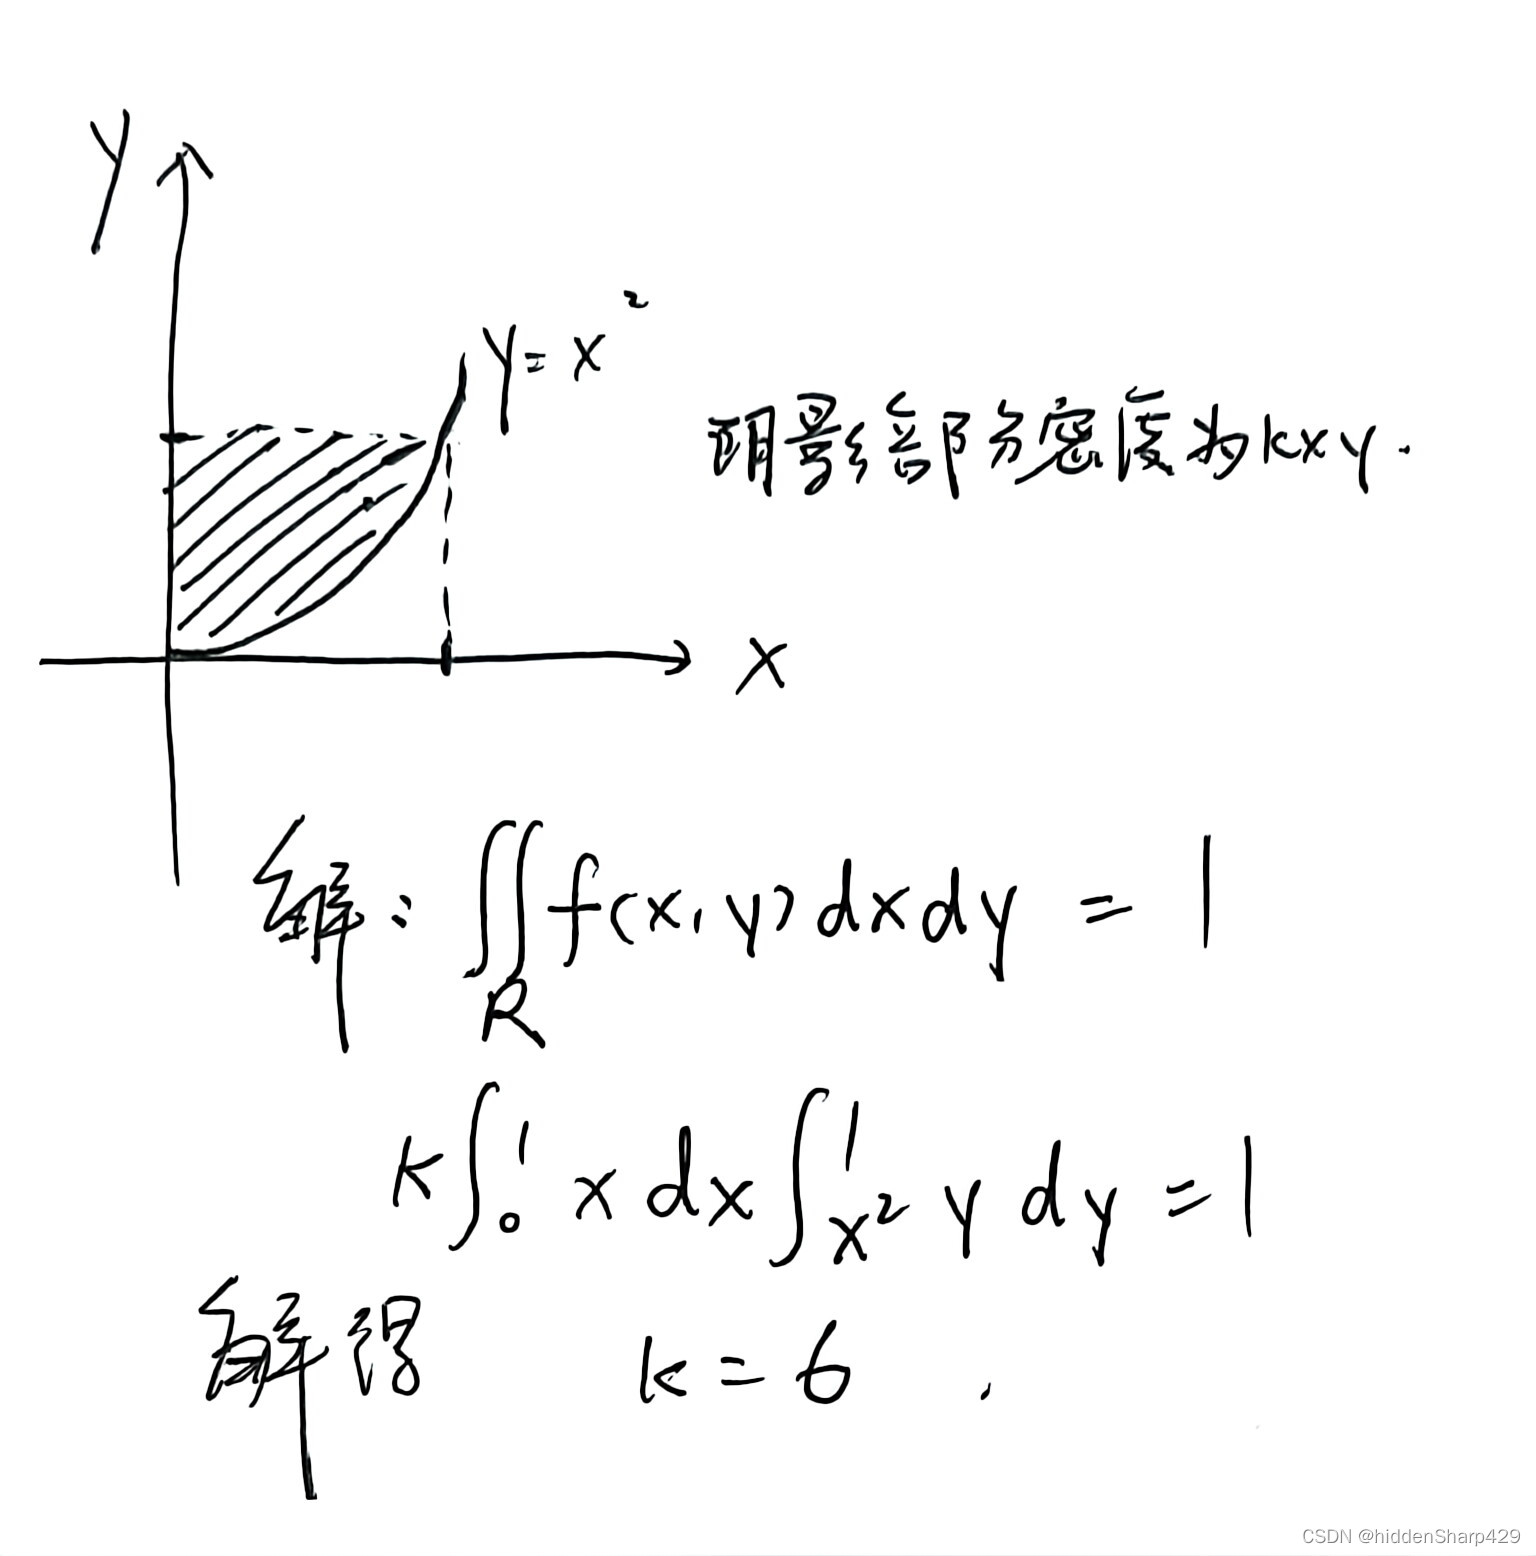 y
y = x²
阴影部分密度为kxy.
x
解: ∬_R f(x, y) dx dy = 1
k∫₀¹ x dx ∫_{x²}^1 y dy = 1
解得 k = 6 .
CSDN @hiddenSharp429